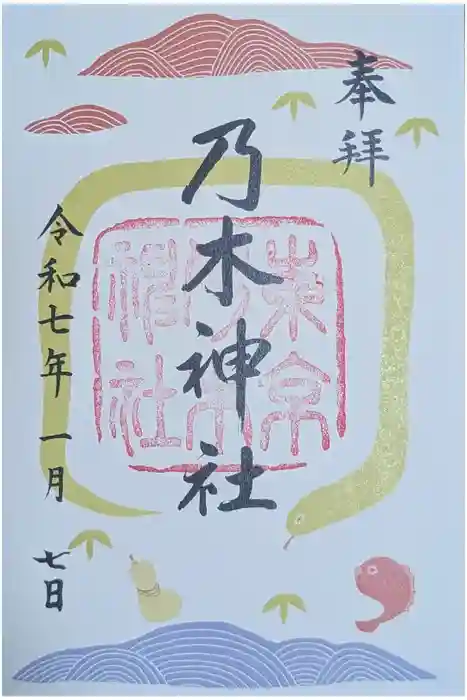 奉拝
乃木神社
東京乃木神社
令和七年一月七日